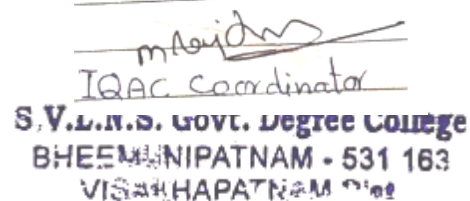 IQAC Coordinator
S.V.L.N.S. Govt. Degree College
BHEEMUNIPATNAM - 531 163
VISAKHAPATNAM Dist